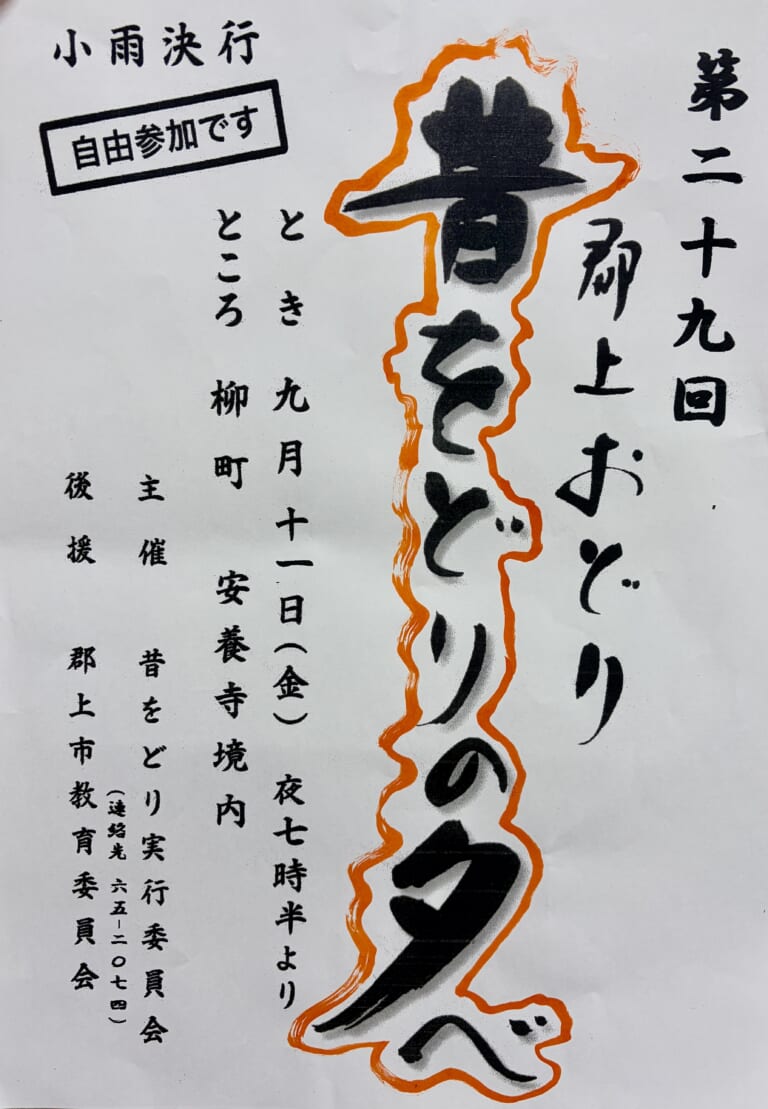 第二十九回
郡上おどり
昔をどりの夕べ
小雨決行
自由参加です
とき 九月十一日(金) 夜七時半より
ところ 柳町 安養寺境内
主催 昔をどり実行委員会
(連絡先 六五ー二〇七四)
後援 郡上市教育委員会